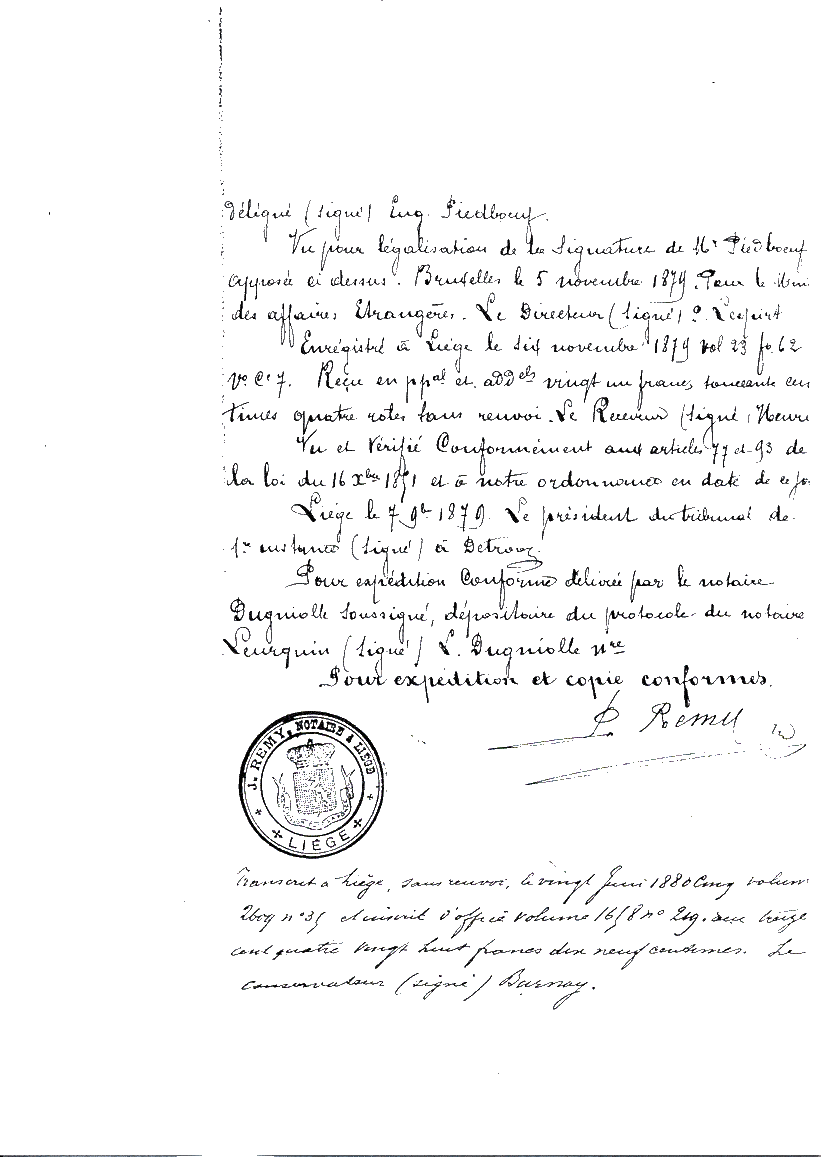 délégué (signé) Eug. Piedboeuf.
Vu pour légalisation de la signature de Mr Piedboeuf
apposée ci dessus. Bruxelles le 5 novembre 1879. Pour le Mini
des affaires Etrangères. Le Directeur (signé)
Enrégistré à Liége le six novembre 1879 vol 23 fo. 62
vo. Ce 7. Reçu en ppal et addels vingt un francs soixante cen
times quatre roles sans renvoi. Le Receveur (signé) Henri
Vu et Vérifié Conformément aux articles 77 et 93 de
la loi du 16 Xbre 1851 et à notre ordonnance en date de ce jo
Liége le 7 9bre 1879. Le président du tribunal de
1re instance (signé) à Detrooz
Pour expédition Conforme délivrée par le notaire
Dugniolle soussigné, dépositaire du protocole du notaire
Leurquin (signé) L. Dugniolle nre
Pour expédition et copie conformes.
Remy
J. REMY, NOTAIRE A LIEGE
LIÉGE
Transcrit à Liége, sans renvoi, le vingt Juin 1880 cinq volum
2609 n° 35 et inscrit d'office volume 1658 n° 219. aux treize
cent quatre vingt huit francs dix neuf centimes. Le
conservateur (signé) Barnay.